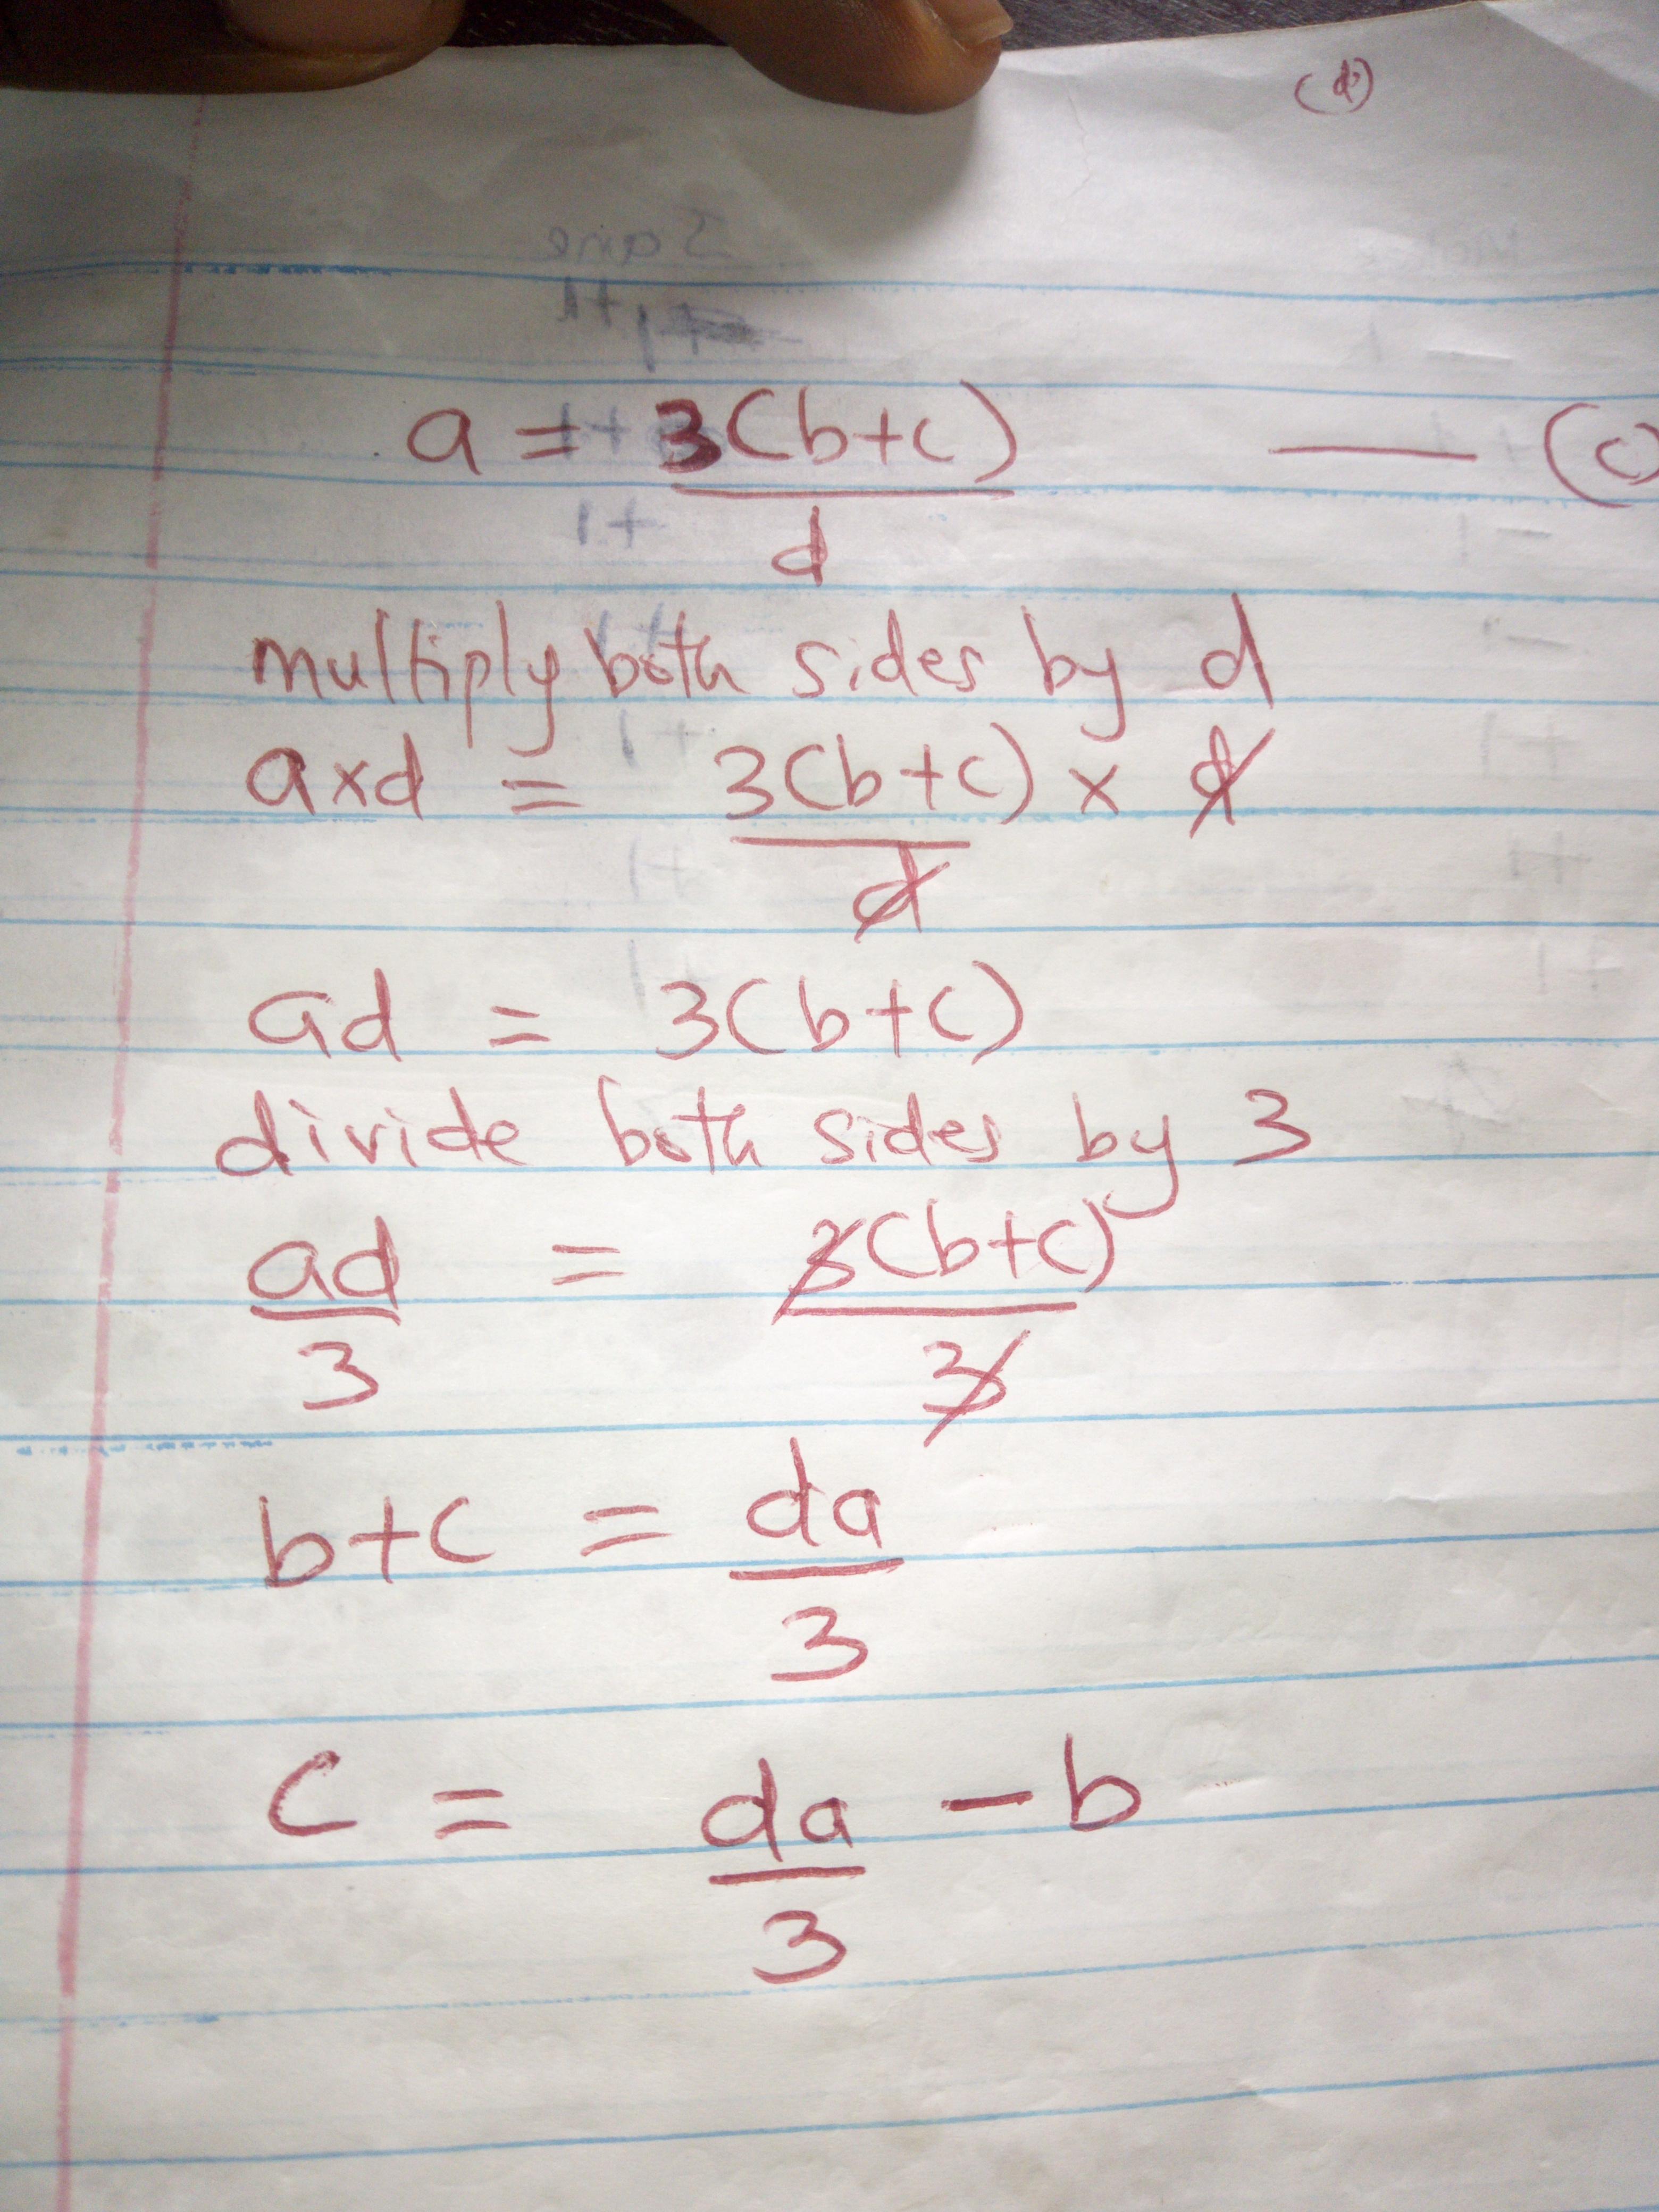 (d)
a = 3(b+c) — (c)
d
multiply both sides by d
a×d = 3(b+c) × d
d
ad = 3(b+c)
divide both sides by 3
ad = 3(b+c)
3 3
b+c = da
3
c = da - b
3